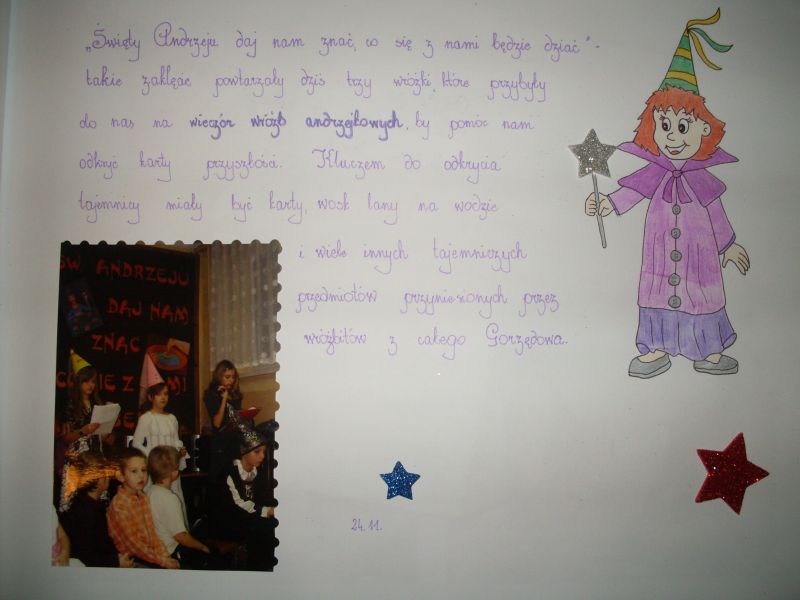 „Święty Andrzeju daj nam znać, co się z nami będzie dziać"-
takie zaklęcie powtarzały dziś trzy wróżki, które przybyły
do nas na wieczór wróżb andrzejkowych, by pomóc nam
odkryć karty przyszłości. Kluczem do odkrycia
tajemnicy miały być karty, wosk lany na wodzie
i wiele innych tajemniczych
przedmiotów przyniesionych przez
wróżbitów z całego Gorzędowa.
ŚW ANDRZEJU
DAJ NAM
ZNAĆ
24.11.